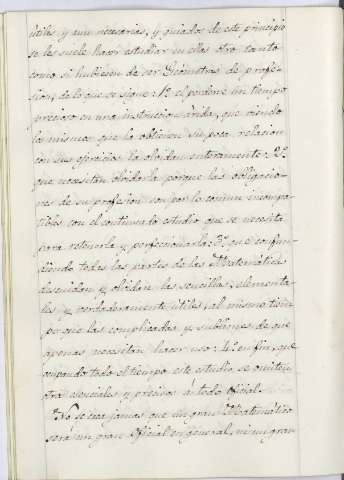 útiles y aun necesarias, y guiados de este principio
se les suele hacer estudiar en ellas otro tanto
como si hubiesen de ser Geómetras de profe-
sion, de lo que se sigue: 1º el perderse un tiempo
precioso en una instruccion árida, que viendo
los mismos que la obtienen su poca relacion
con sus ejercicios la olvidan enteramente: 2º
que necesitan olvidarla porque las obligacio-
nes de su profesion son por lo comun incompa-
tibles con el continuado estudio que se necesita
para retenerla y perfeccionarla: 3º que confun-
diendo todas las partes de las Matemáticas
descuidan y olvidan las sencillas, elementa-
les y verdaderamente útiles, al mismo tiem-
po que las complicadas y sublimes de que
apenas necesitan hacer uso: 4º en fin, que
ocupando todo el tiempo este estudio se omiten
otros esenciales y precisos á todo Oficial.
No se crea jamas que un gran Matemático
será un gran Oficial en general, ni un gran